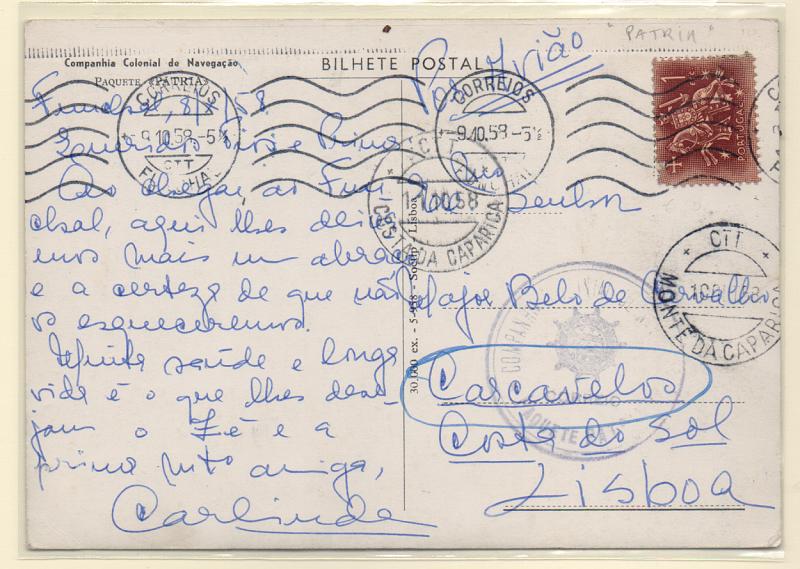 "PATRIA"
Companhia Colonial de Navegação
PAQUETE «PATRIA»
BILHETE POSTAL
Por Avião
CORREIOS
-9.10.58-5½
CTT
CORREIOS
-9.10.58-5½
PORTUGAL
Funchal, 8/ /58
Queridos Tios e Primo
Ao chegar ao Fun
chal, aqui lhes dei
mais um abraço
e a certeza de que não
os esqueceremos.
saúde e longa
vida é o que lhes dese-
jam o Zé e a
prima mto amiga,
Carlinda
30.000 ex. - 5-958 - Lisboa
CTT
COSTA DA CAPARICA
CTT
MONTE DA CAPARICA
Senhor
Major Belo de Carvalho
Carcavelos
Costa do Sol
Lisboa